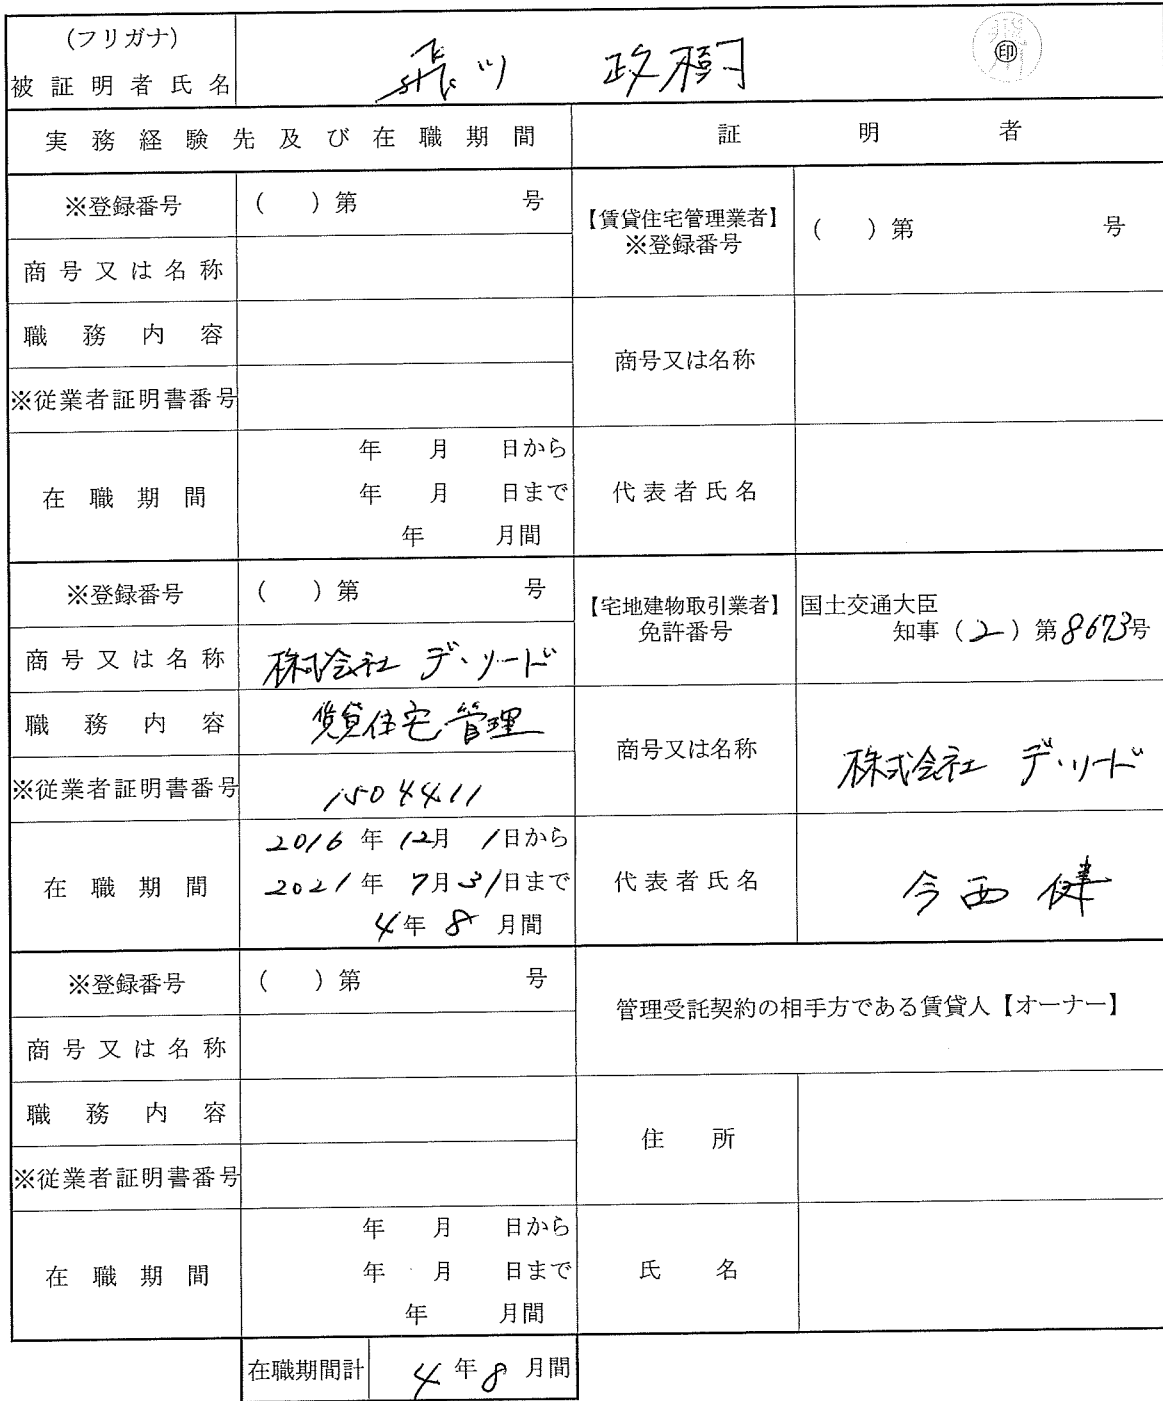 (フリガナ)
被証明者氏名 飛川 政樹 ㊞
実務経験先及び在職期間 証明者
※登録番号 ( ) 第 号
【賃貸住宅管理業者】
※登録番号
( ) 第 号
商号又は名称
職務内容
商号又は名称
※従業者証明書番号
在職期間
年 月 日から
年 月 日まで
年 月間
代表者氏名
※登録番号 ( ) 第 号
【宅地建物取引業者】
免許番号
国土交通大臣
知事 (2) 第8673号
商号又は名称 株式会社 デ・リード
職務内容 賃貸住宅管理
商号又は名称 株式会社 デ・リード
※従業者証明書番号 1504411
在職期間
2016年12月1日から
2021年7月31日まで
4年8月間
代表者氏名 今西 健
※登録番号 ( ) 第 号
管理受託契約の相手方である賃貸人【オーナー】
商号又は名称
職務内容
住所
※従業者証明書番号
在職期間
年 月 日から
年 月 日まで
年 月間
氏名
在職期間計 4年8月間